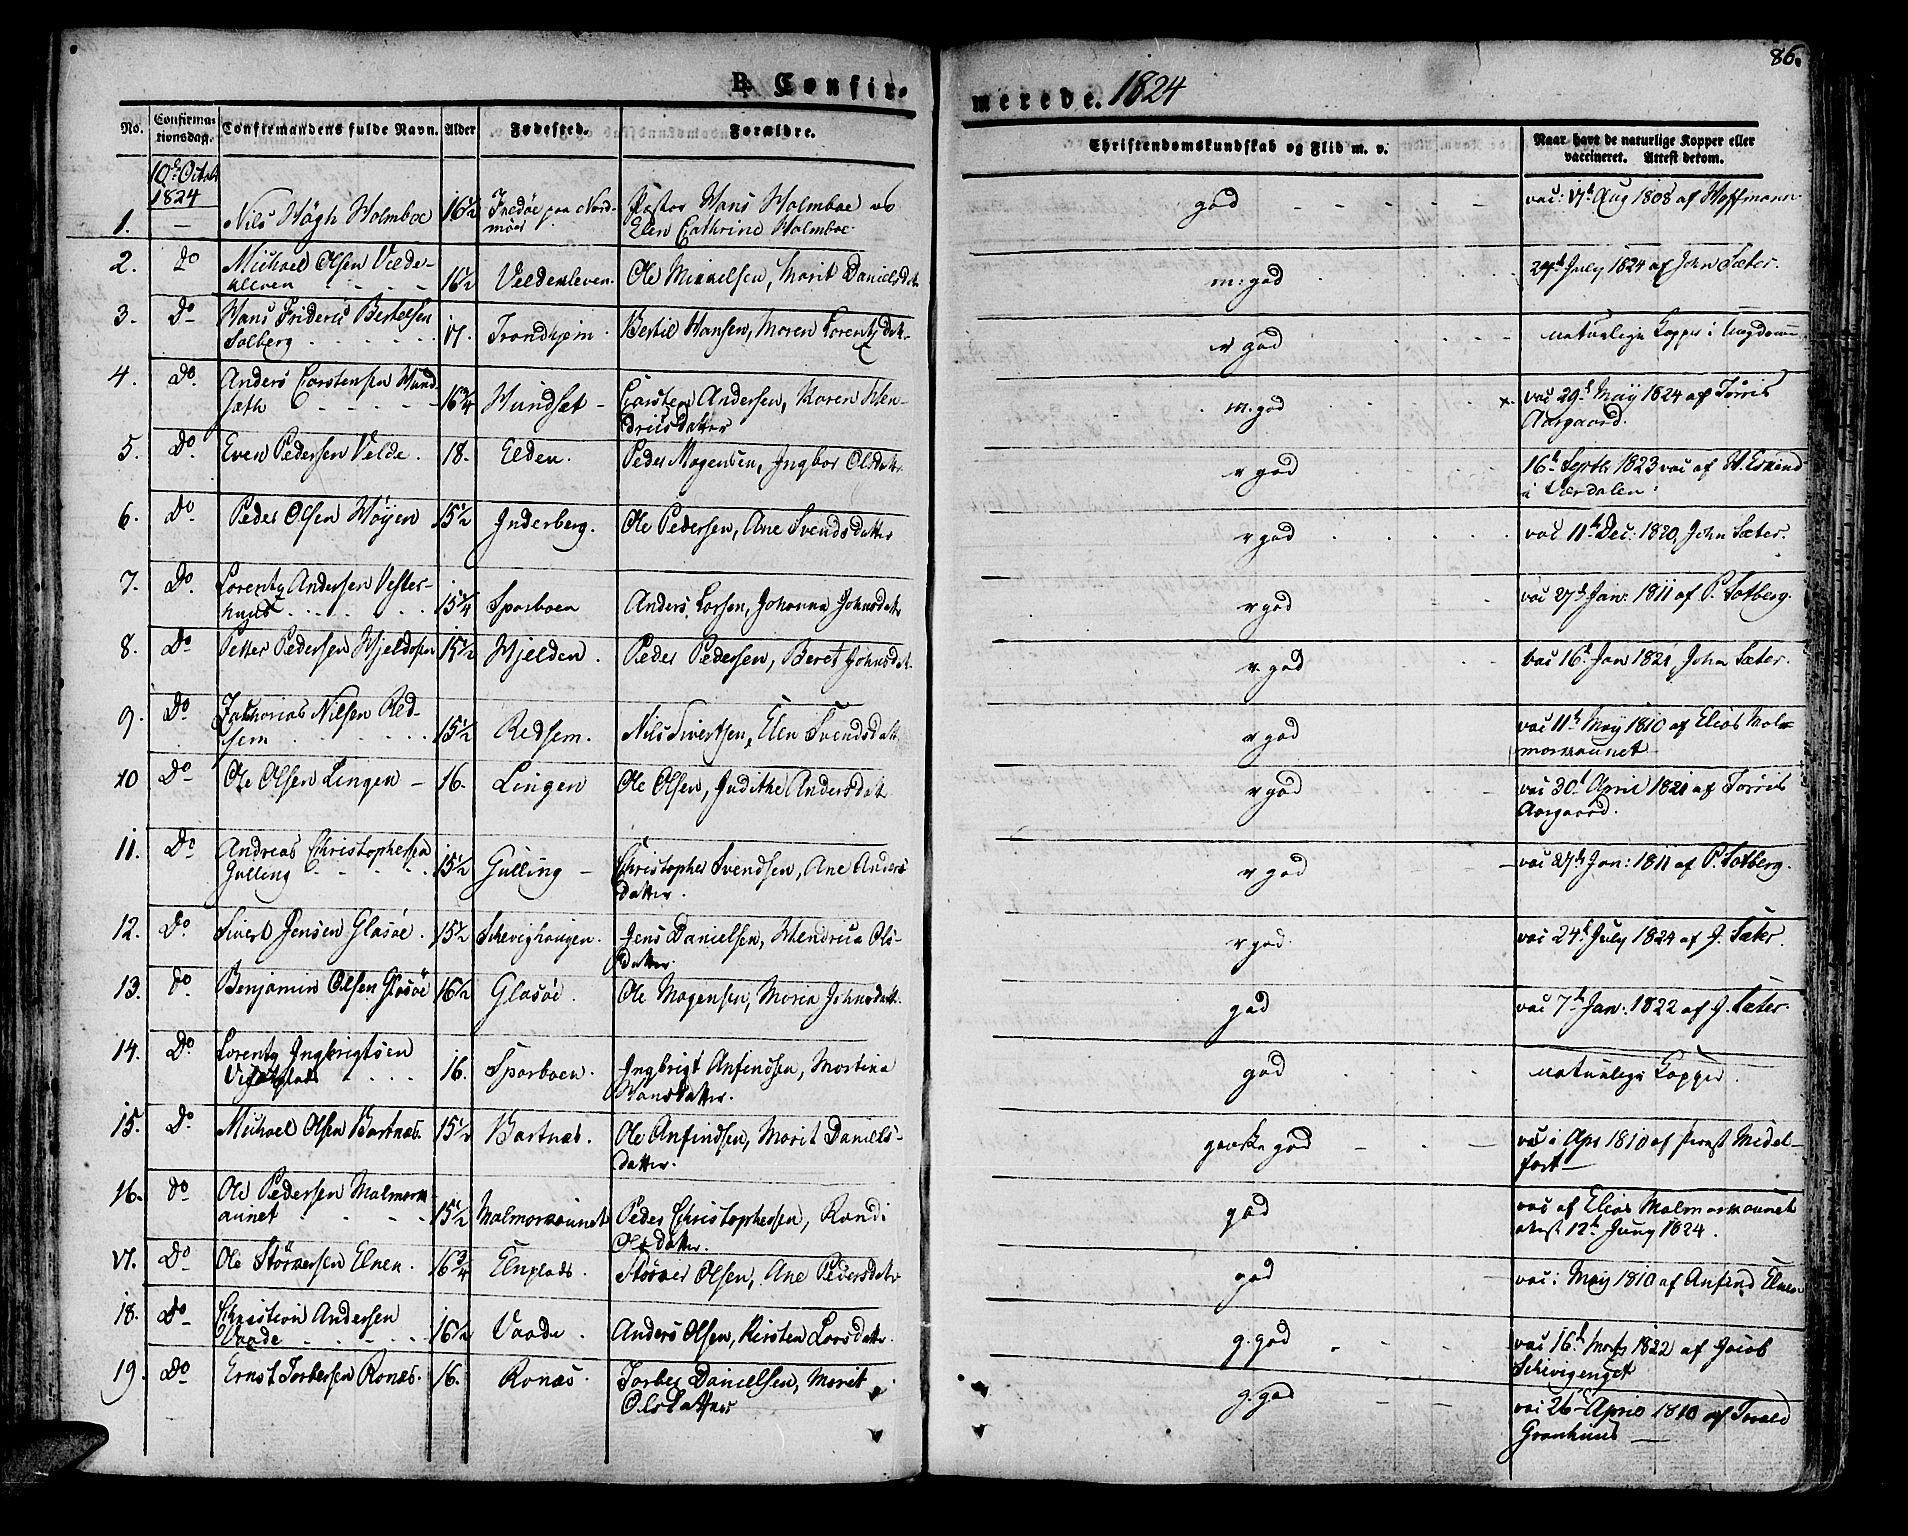 86.
B. Confir-
merede. 1824
No.
Confirma-
tionsdag.
Confirmandens fulde Navn.
Alder
Fødested.
Forældre.
Christendomskundskab og Flid m. v.
Naar havt de naturlige Kopper eller
vaccineret. Attest derom.
10de Octobr
1824
1. Nils Høgh Holmboe 16½ paa Nord- Pastor Hans Holmboe og god vac: 17de Aug 1808 af Hoffmann
møer Elen Cathrine Holmboe
2. Do Michael Olsen Velde- 16½ Veldemleven Ole Mikkelsen, Marit Danielsdat m: god 24de July 1824 af John Sæter.
3. Do Hans Frideric Bertelsen 17. Trondhjem. Bertel Hansen, Maren Lorentzdat. v god naturlige Kopper i
Solberg
4. Do. Anders Carstensen Hund- 16¾ Hundsæt - Carsten Andersen, Karen Hen- m. god vac 29de May 1824 af Torris
sæth dricsdatter Aargaard.
5. Do. Even Pedersen Velde. 18. Elden. Peder Mogensen, Ingbor Olsdatr v god 16de Septbr 1823 vac af
i Værdalen.
6. Do Peder Olsen Høyem 15½ Inderberg. Ole Pedersen, Ane Svendsdatter v god vac 11te Dec: 1820, John Sæter.
7. Do Lorentz Andersen Vester- 15¾ Sparboen Anders Larsen, Johanna Johnsdatr v god vac 27de Jan: 1811 af P. Solberg.
8. Do Petter Pedersen Hjeldosen 15½ Hjelden. Peder Pedersen, Beret Johnsdat. v. god vac 16de Jan 1821, John Sæter.
9. Do Zacharias Nilsen Red- 15½ Redsem. Nils Sivertsen, Elen Svendsdatr v god vac 11te May 1810 af Elias Malm-
sem
10 Do Ole Olsen Lingen - 16. Lingen Ole Olsen, Judithe Andersdat. v god vac 30de April 1821 af Torris
Aargaard.
11. Do Andreas Christophersen 15½ Gulling - Christopher Svendsen, Ane Anders- v god vac 27de Jan: 1811 af P. Solberg.
Gulling datter.
12. Do Sivert Jensen Glasøe. 15½ Schevighaugen. Jens Danielsen, Hendrica Ols- v god. vac 24de July 1824 af J. Sæter.
datter.
13. do Benjamin Olsen Glasöe 16½ Glasöe. Ole Mogensen, Maria Johnsdatt. god vac 7de Jan: 1822 af J. Sæter.
14. Do Lorentz Ingbrigtsen 16. Sparboen. Ingbrigt Anfindsen, Martina god naturlige Kopper.
Hansdatter.
15. Do. Michael Olsen Bartnæs. 15½ Bartnæs. Ole Anfindsen, Marit Daniels- ganske god vac i Apr 1810 af Medel-
datter. fart -
16. do Ole Pedersen Malmoex- 15½ Peder Christophersen, Randi god vac af Elias
aunet Olsdatter. 12te Juny 1824.
17. Do Ole Størkersen Elnen. 16¾ Elnplads. Størker Olsen, Ane Pedersdatr god vac: May 1810 af Anfind Elnen
18. Do Christian Andersen 16½ Vaade. Anders Olsen, Kirsten Larsdatter. g. god vac 16de 1822 af Jacob
Vaade
19. Do Ernst Torbersen Ronæs. 16. Ronæs. Torber Danielsen, Marit g. god vac 26de April 1810 af
Olsdatter